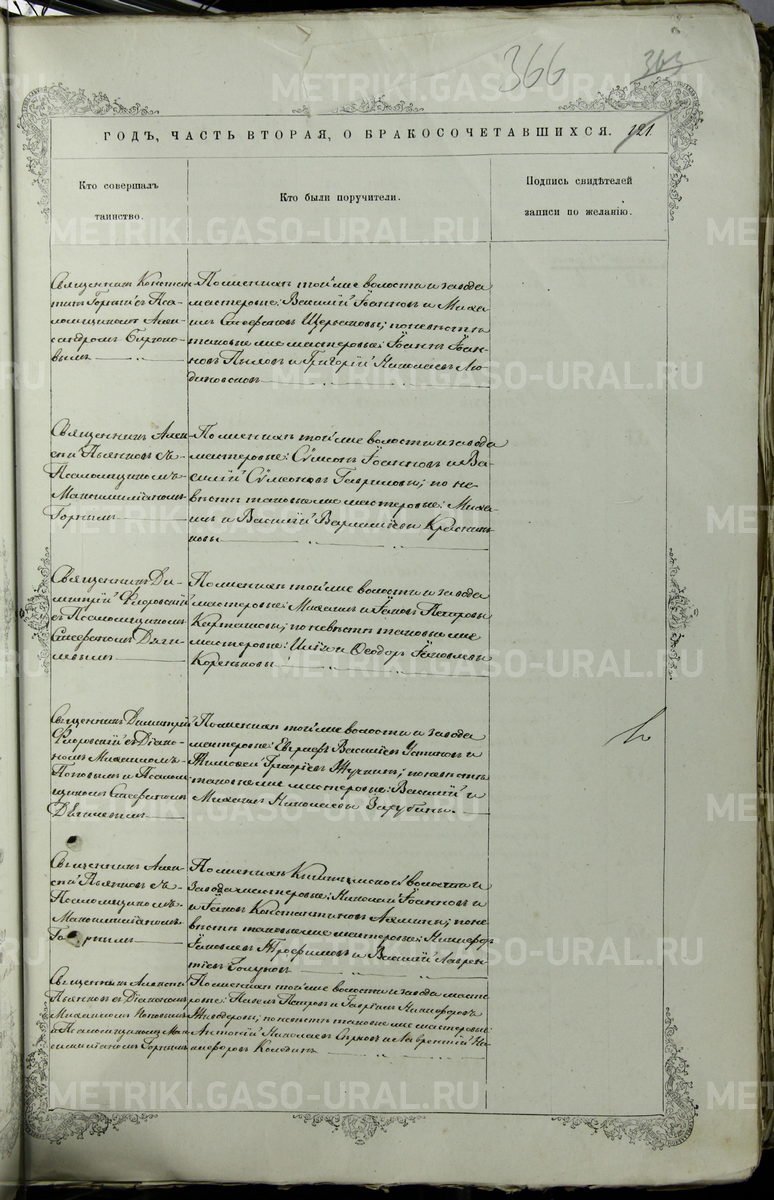 366
363
ГОДЪ, ЧАСТЬ ВТОРАЯ, О БРАКОСОЧЕТАВШИХСЯ.
121.
Кто совершалъ
таинство.
Кто были поручители.
Подпись свидѣтелей
записи по желанію.
Священникъ Констан
тинъ съ Пса-
ломщикомъ Алек
сандромъ
вымъ
По женихѣ той же волости и завода
мастеровые: Василій Іоанновъ и Миха
илъ Стефановъ Щербаковы; по невѣстѣ
таковые же мастеровые: Іоаннъ Іоан-
новъ и Григорій Николаевъ Лю
диновсков
Священникъ Алек
сій Пьянковъ съ
Псаломщикомъ
Максимиліаномъ
Горнымъ
По женихѣ той же волости и завода
мастеровые: Сѵмеонъ Іоанновъ и Ва-
силій Сѵмеоновъ Гавриловы; по не-
вѣстѣ таковые же мастеровые: Миха
илъ и Василій
новы
Священникъ Ди-
митрій Флоровскій
съ Псаломщикомъ
Стефаномъ Дяги
левымъ
По женихѣ той же волости и завода
мастеровые: Михаилъ и Іаковъ Петровы
Карташовы; по невѣстѣ таковые же
мастеровые: Илія и Ѳеодоръ Іаковлевы
Кореньковы
Священникъ Димитрій
Флоровскій съ Діако-
номъ Михаиломъ
Поповымъ и Псалом
щикомъ Стефаномъ
Дягилевымъ
По женихѣ той же волости и завода
мастеровые: Евграфъ Василіевъ Устиновъ и
Тимоѳей Григоріевъ; по невѣстѣ
таковые же мастеровые: Василій и
Михаилъ Николаевы Зарубины.
Священникъ Алек
сій Пьянковъ съ
Псаломщикомъ
Максимиліаномъ
Горнымъ
По женихѣ Кыштымской волости и
завода мастеровые: Николай Іоанновъ и
и Іаковъ Константиновъ Лямины; по не-
вѣстѣ таковые же мастеровые: Никифоръ
Іаковлевъ Трофимовъ и Василій Лаврен
тіевъ Голуновъ
Священникъ Алексій
Пьянковъ съ Діакономъ
Михаиломъ Поповымъ
и Псаломщикомъ Мак
симиліаномъ Горнымъ
По женихѣ той же волости и завода масте
ровые: Павелъ Петровъ и Гавріилъ Никифоровъ
по невѣстѣ таковые же мастеровые:
Антоній Николаевъ и Лаврентій Ни
кифоровъ
METRIKI.GASO-URAL.RU